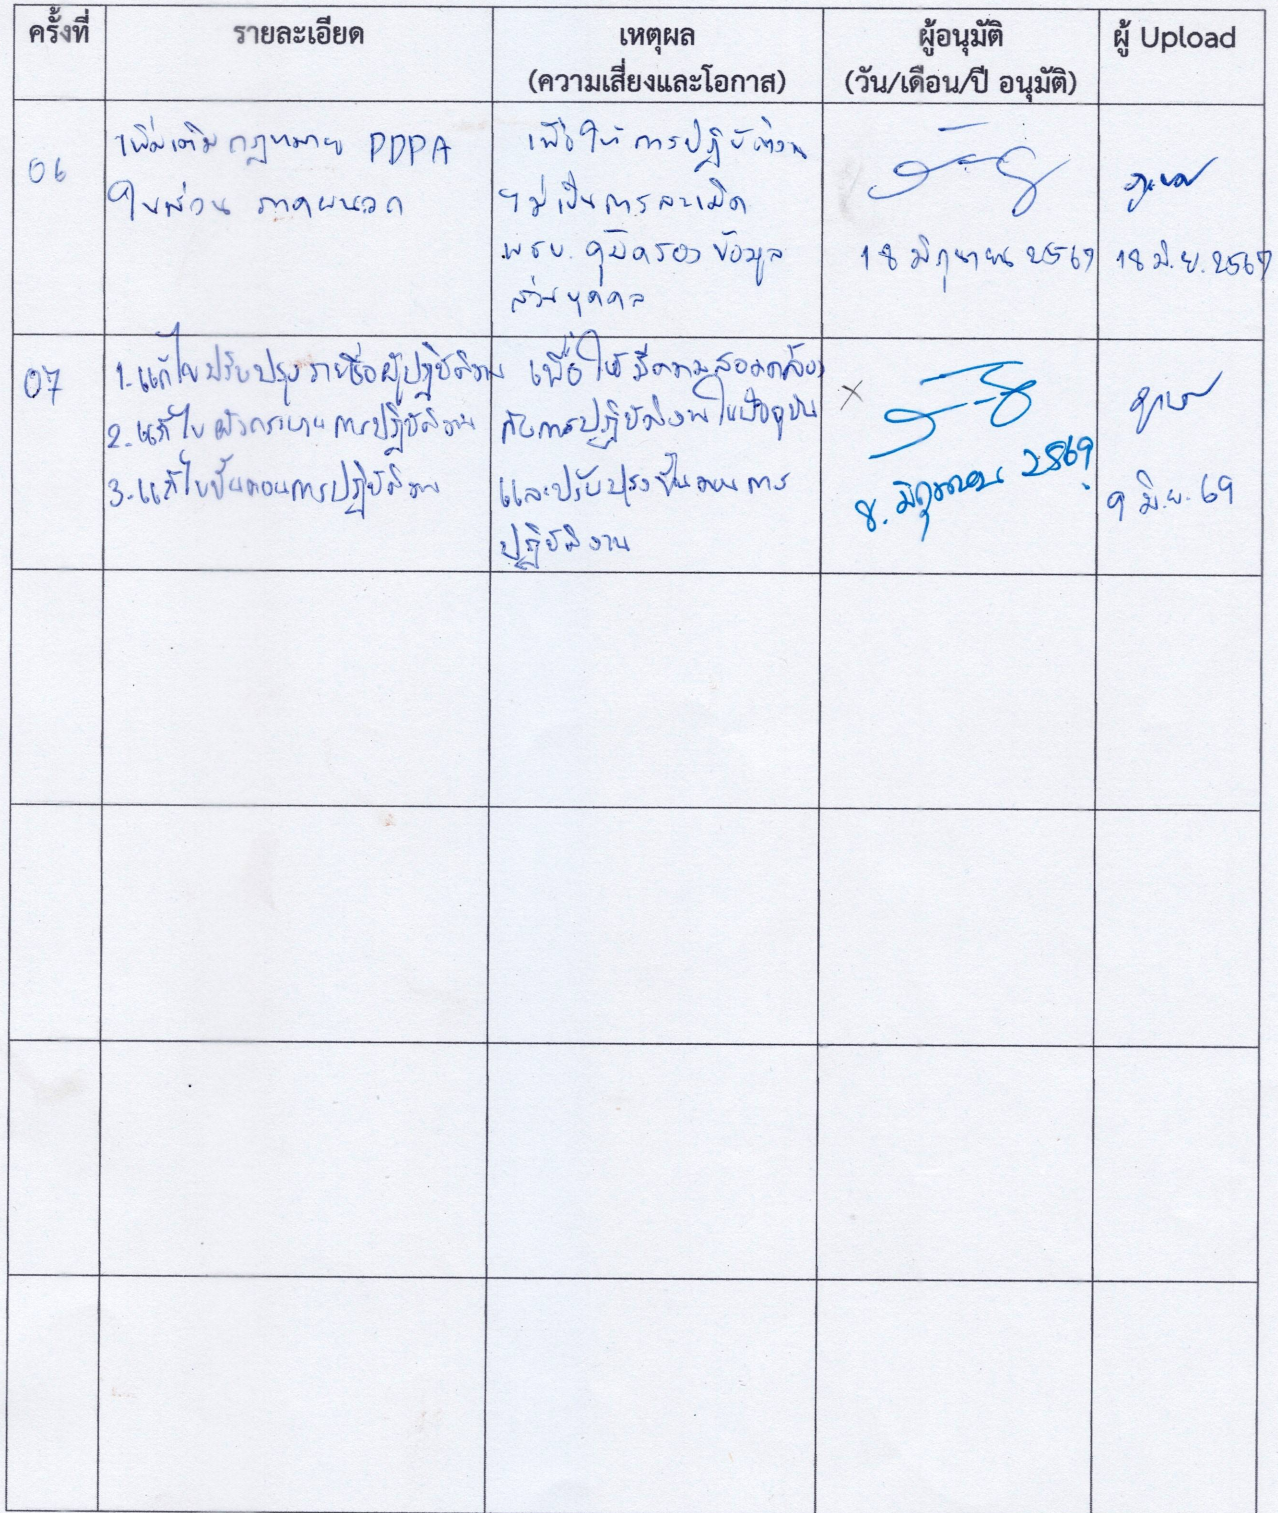 ครั้งที่ รายละเอียด เหตุผล ผู้อนุมัติ ผู้ Upload
(ความเสี่ยงและโอกาส) (วัน/เดือน/ปี อนุมัติ)
06
เพิ่มเติมกฎหมาย PDPA
ในส่วน ภาคผนวก
เพื่อให้การปฏิบัติงาน
ไม่เป็นการละเมิด
พรบ. คุ้มครองข้อมูล
ส่วนบุคคล
18 มิถุนายน 2567
18 มิ.ย. 2567
07
1. แก้ไขปรับปรุงรายชื่อผู้ปฏิบัติงาน
2. แก้ไขผังกระบวนการปฏิบัติงาน
3. แก้ไขขั้นตอนการปฏิบัติงาน
เพื่อให้มีความสอดคล้อง
กับการปฏิบัติงานในปัจจุบัน
และปรับปรุงขั้นตอนการ
ปฏิบัติงาน
×
8. มิถุนายน 2569
9 มิ.ย. 69